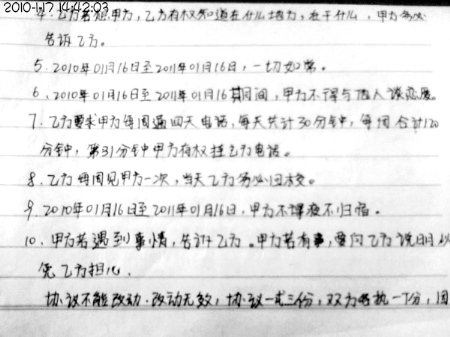 2010-1-17 14:42:03
4. 乙方若想甲方,乙方有权知道在什么地方,在干什么,甲方务必
告诉乙方。
5. 2010年01月16日至2011年01月16日,一切如常。
6. 2010年01月16日至2011年01月16其间间,甲方不得与他人谈恋爱。
7. 乙方要求甲方每周通四天电话,每天共计30分钟,每周合计120
分钟,第31分钟甲方有权挂乙方电话。
8. 乙方每周见甲方一次,当天乙方务必回校。
9. 2010年01月16日至2011年01月16日,甲方不得夜不归宿。
10. 甲方若遇到事情,告诉乙方。甲方若有事,要向乙方说明以
免乙方担心。
协议不能改动,改动无效,协议一式三份,双方各执一份,